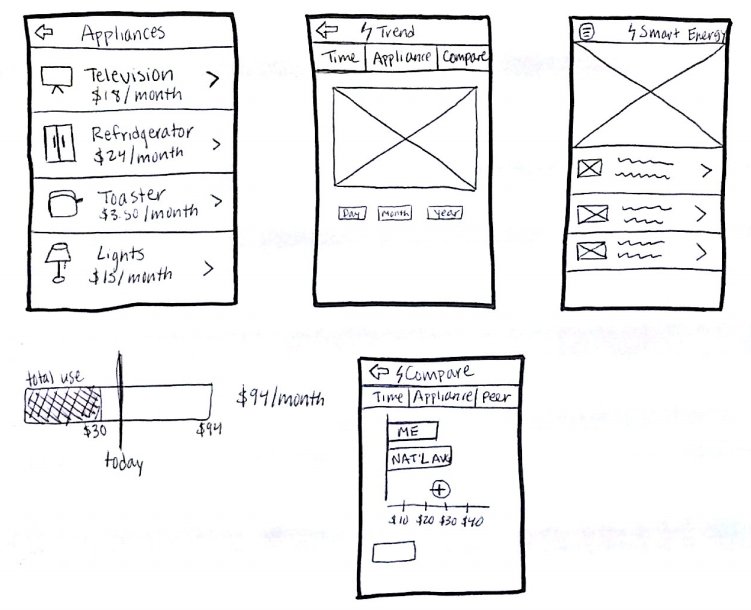 Appliances
Television
$18/month
Refridgerator
$24/month
Toaster
$3.50/month
Lights
$15/month
Trend
Time Appliance Compare
Day Month Year
Smart Energy
total use
$30 $94
today
$94/month
Compare
Time Appliance Peer
ME
NAT'L AVG
$10 $20 $30 $40